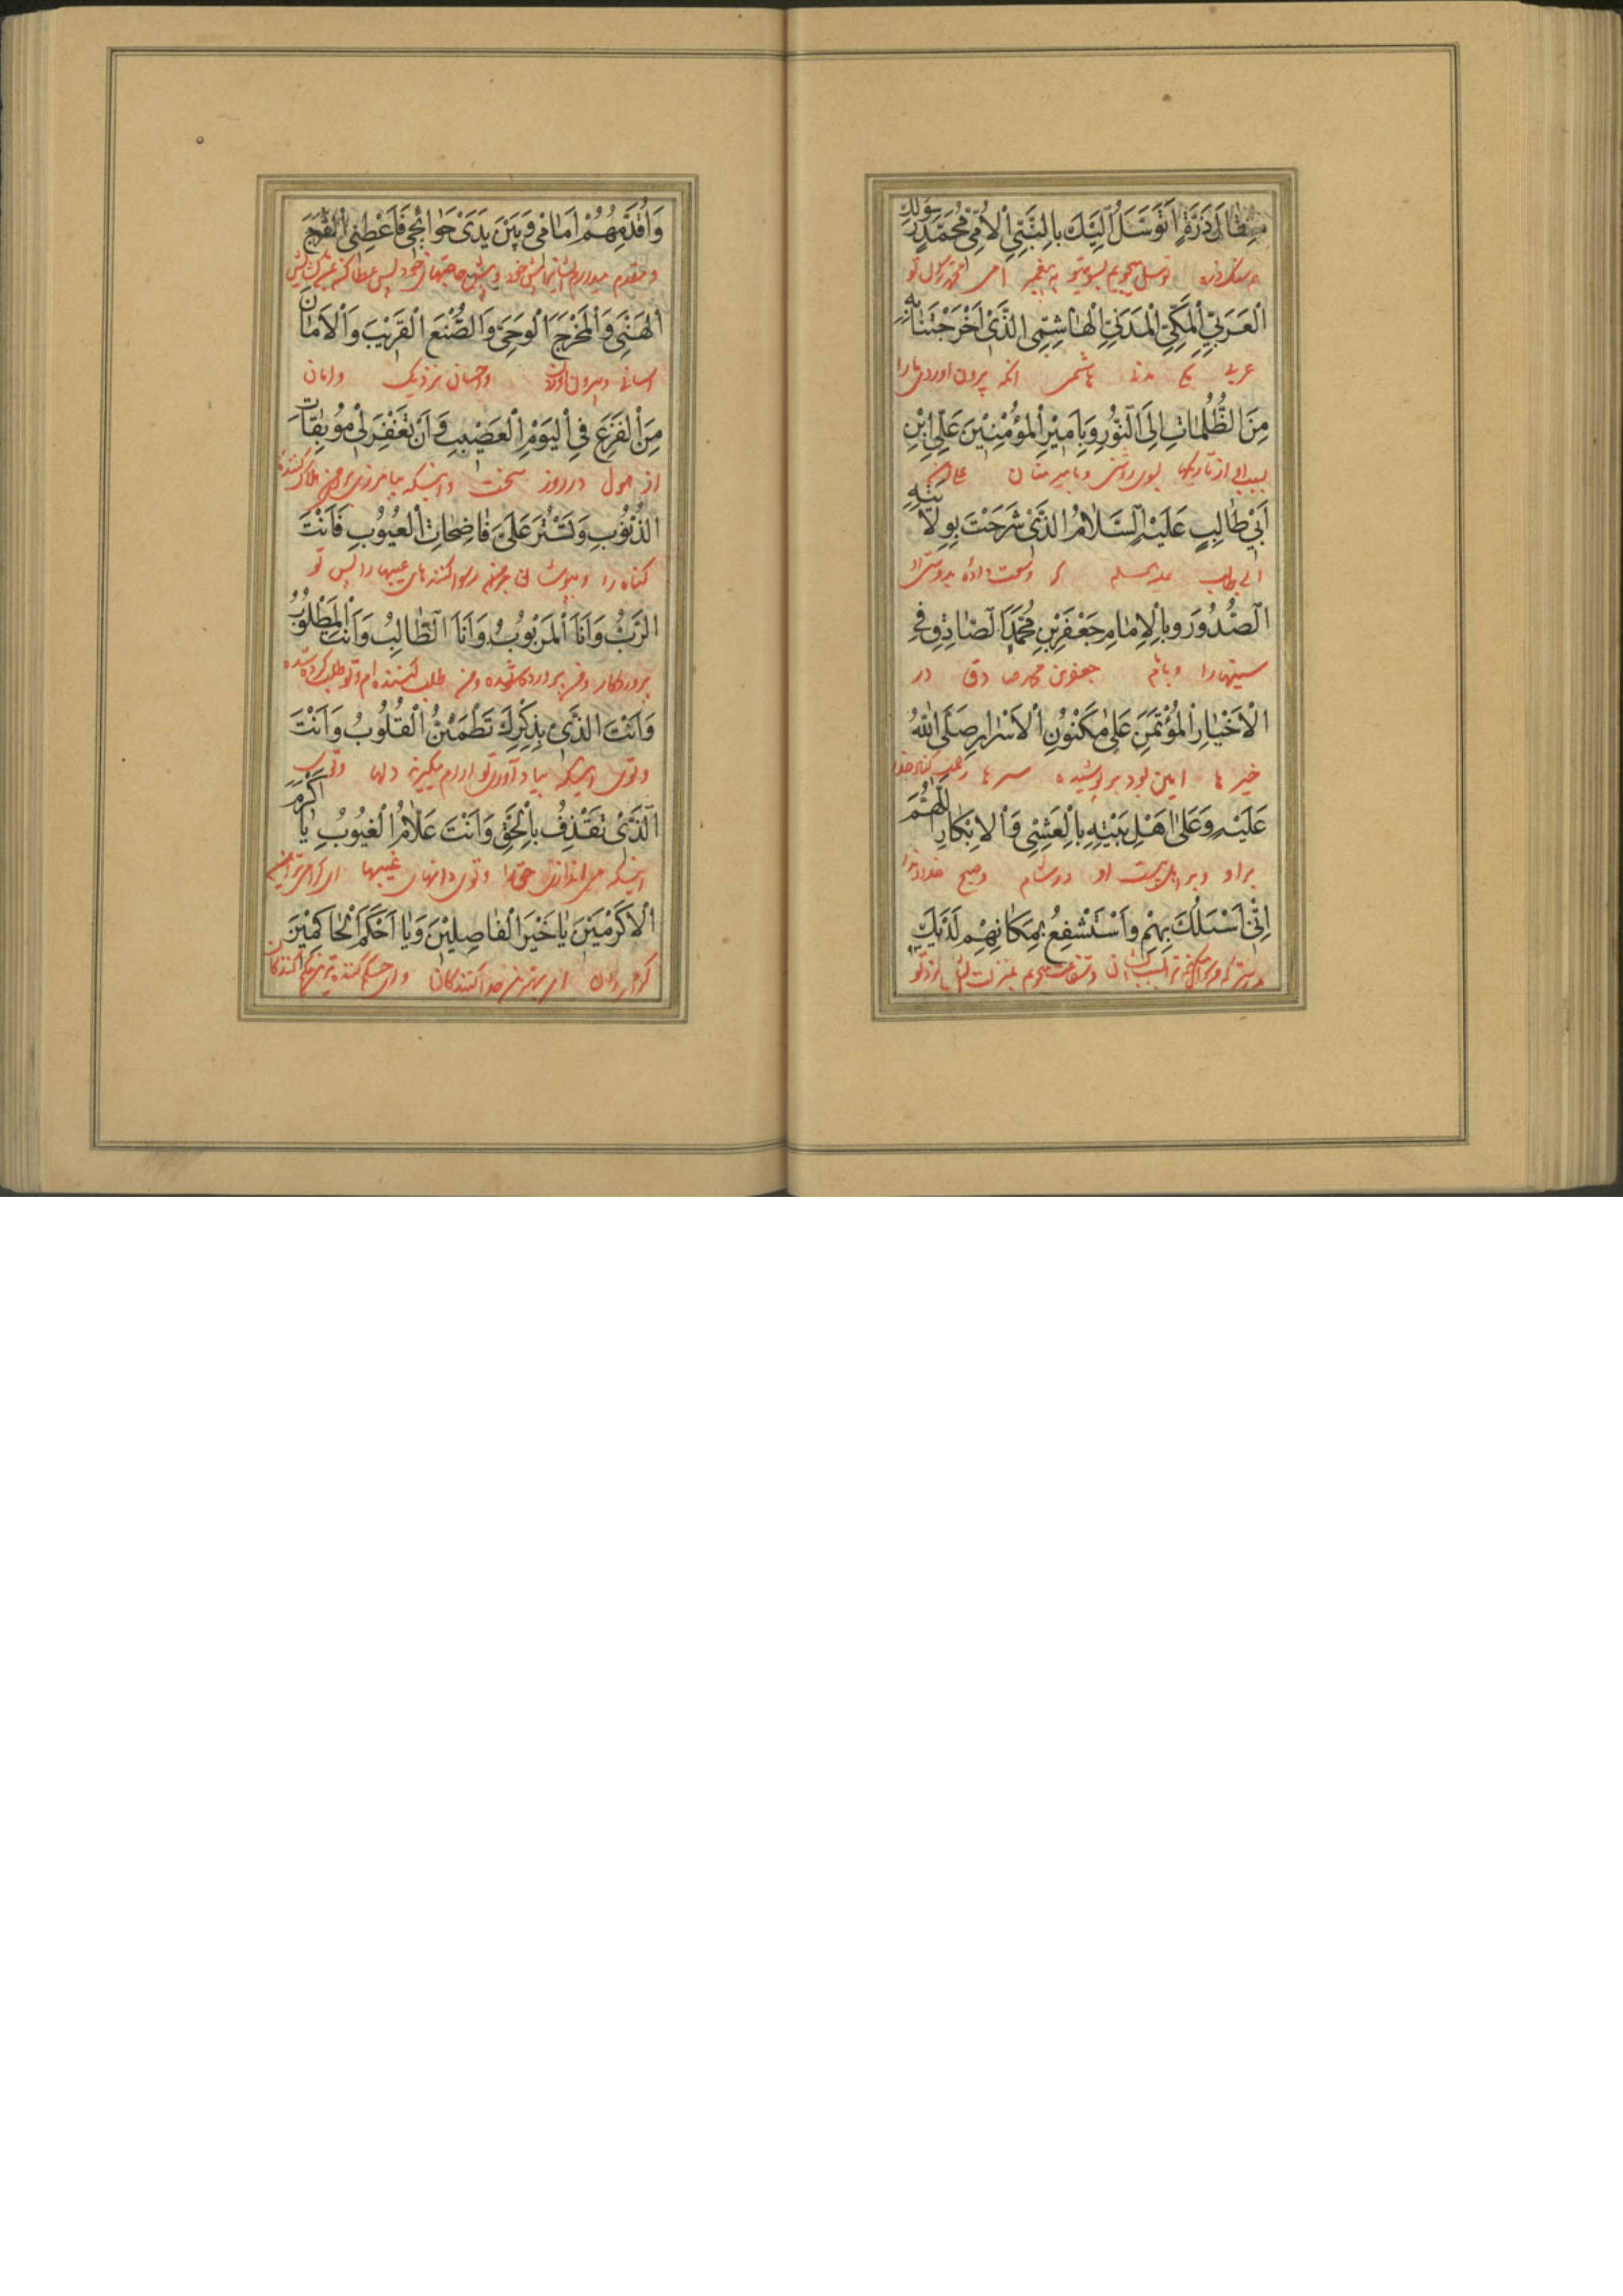 مِثْقَالَ ذَرَّةٍ اَتَوَسَّلُ اِلَيْكَ بِالنَّبِيِّ الْاُمِّيِّ مُحَمَّدٍ رَسُولِكَ
توسل میجویم بسوی تو به پیغمبر امی محمد رسول تو
الْعَرَبِيِّ الْمَكِّيِّ الْمَدَنِيِّ الْهَاشِمِيِّ الَّذِيْ اَخْرَجْتَنَا بِهِ
عربی مکی مدنی هاشمی انکه بیرون اوردی مارا
مِنَ الظُّلُمَاتِ اِلَى النُّوْرِ وَبِاَمِيْرِ الْمُؤْمِنِيْنَ عَلِيِّ ابْنِ
بسبب او از تاریکیها بسوی روشنی و بامیر مؤمنان علی بن
اَبِيْ طَالِبٍ عَلَيْهِ السَّلَامُ الَّذِيْ شَرَحْتَ بِوِلَايَتِهِ
ابی طالب علیه السلام که وسعت دادهٔ بدوستی او
الصُّدُوْرَ وَبِالْاِمَامِ جَعْفَرِ بْنِ مُحَمَّدٍ الصَّادِقِ فِي
سینها را و بامام جعفر بن محمد صادق در
الْاَخْيَارِ الْمُؤْتَمَنِ عَلَى مَكْنُوْنِ الْاَسْرَارِ صَلَّى اللّٰهُ
خیر ها امین بود بر پوشیده سر ها رحمت کناد خدا
عَلَيْهِ وَعَلَى اَهْلِ بَيْتِهِ بِالْعَشِيِّ وَالْاِبْكَارِ اللّٰهُمَّ
بر او و بر اهل بیت او در شام و صبح خداوندا
اِنِّيْ اَسْئَلُكَ بِهِمْ وَاَسْتَشْفِعُ بِمَكَانِهِمْ لَدَيْكَ
بدرستی که من سؤال میکنم ترا بسبب ایشان و شفاعت میجویم بمنزلت ایشان نزد تو
وَاُقَدِّمُهُمْ اَمَامِيْ وَبَيْنَ يَدَيْ حَوَائِجِيْ فَاَعْطِنِي الْفَرَجَ
و مقدم میدارم ایشانرا پیش خود و پیش حاجتهای خود پس عطا کن
الْهَنِيَّ وَالْمَخْرَجَ الْوَحِيَّ وَالصُّنْعَ الْقَرِيْبَ وَالْاَمَانَ
اسانی و بیرون آوردن و احسان نزدیک و امان
مِنَ الْفَزَعِ فِي الْيَوْمِ الْعَصِيْبِ وَاَنْ تَغْفِرَ لِيْ مُوْبِقَاتِ
از هول در روز سخت و اینکه بیامرزی برای من هلاک کنندهٔ
الذُّنُوْبِ وَتَسْتُرَ عَلَيَّ فَاضِحَاتِ الْعُيُوْبِ فَاَنْتَ
گناه را و بپوشانی بر من رسوا کننده های عیبها را پس تو
الرَّبُّ وَاَنَا الْمَرْبُوْبُ وَاَنَا الطَّالِبُ وَاَنْتَ الْمَطْلُوْبُ
پروردگار و من پرورده شده و من طلب کننده ام و تو طلب کرده شده
وَاَنْتَ الَّذِيْ بِذِكْرِكَ تَطْمَئِنُّ الْقُلُوْبُ وَاَنْتَ
و توئی اینکه بیاد آوردن تو ارام میگیرند دلها و توئی
الَّذِيْ تَقْذِفُ بِالْحَقِّ وَاَنْتَ عَلَّامُ الْغُيُوْبِ يَا اَكْرَمَ
اینکه می اندازی حق را و توئی دانهای غیبها ای گرامی ترین
الْاَكْرَمِيْنَ يَا خَيْرَ الْفَاصِلِيْنَ وَيَا اَحْكَمَ الْحَاكِمِيْنَ
ای بهترین جدا کنندکان و ای حکم کننده ترین حکم کنندکان